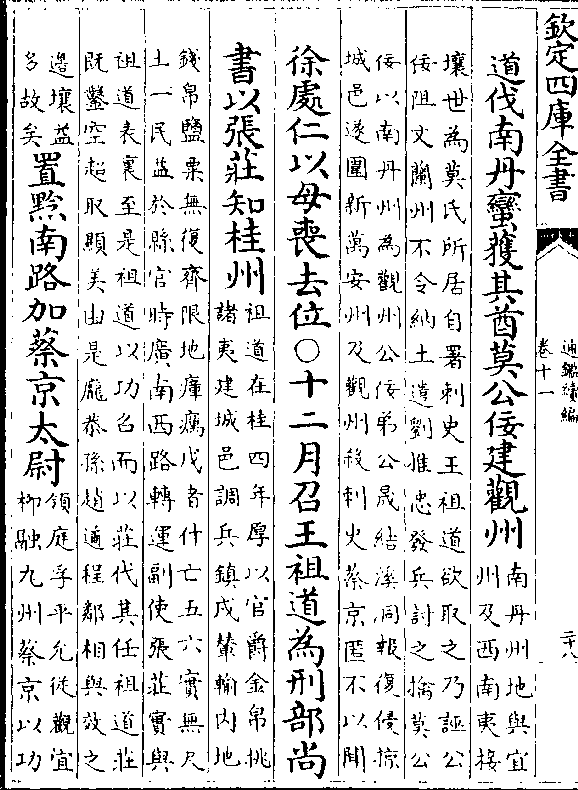 欽定四庫全書
通鑑續編
卷十一
二十八
道伐南丹蠻獲其酋莫公佞建觀州
南丹州地與宜
州及西南夷接
壤世為莫氏所居自署刺史王祖道欲取之乃誣公
佞阻文蘭州不令納土遣劉惟忠發兵討之擒莫公
佞以南丹州為觀州公佞弟公晟結溪洞報復侵掠
城邑遂圍新萬安州及觀州殺刺史蔡京匿不以聞
徐處仁以母喪去位○十二月召王祖道為刑部尚
書以張莊知桂州
祖道在桂四年厚以官爵金帛挑
諸夷建城邑調兵鎮戍輦輸內地
錢帛鹽粟無復齊限地瘴癘戍者什亡五六實無尺
土一民益於縣官時廣南西路轉運副使張莊實與
祖道表裏至是祖道以功召而以莊代其任祖道莊
既鑿空超取顯美由是龐恭孫趙遹程鄰相與效之
邊壤益
多故矣
置黔南路加蔡京太尉
領庭孚平允從觀宜
柳融九州蔡京以功